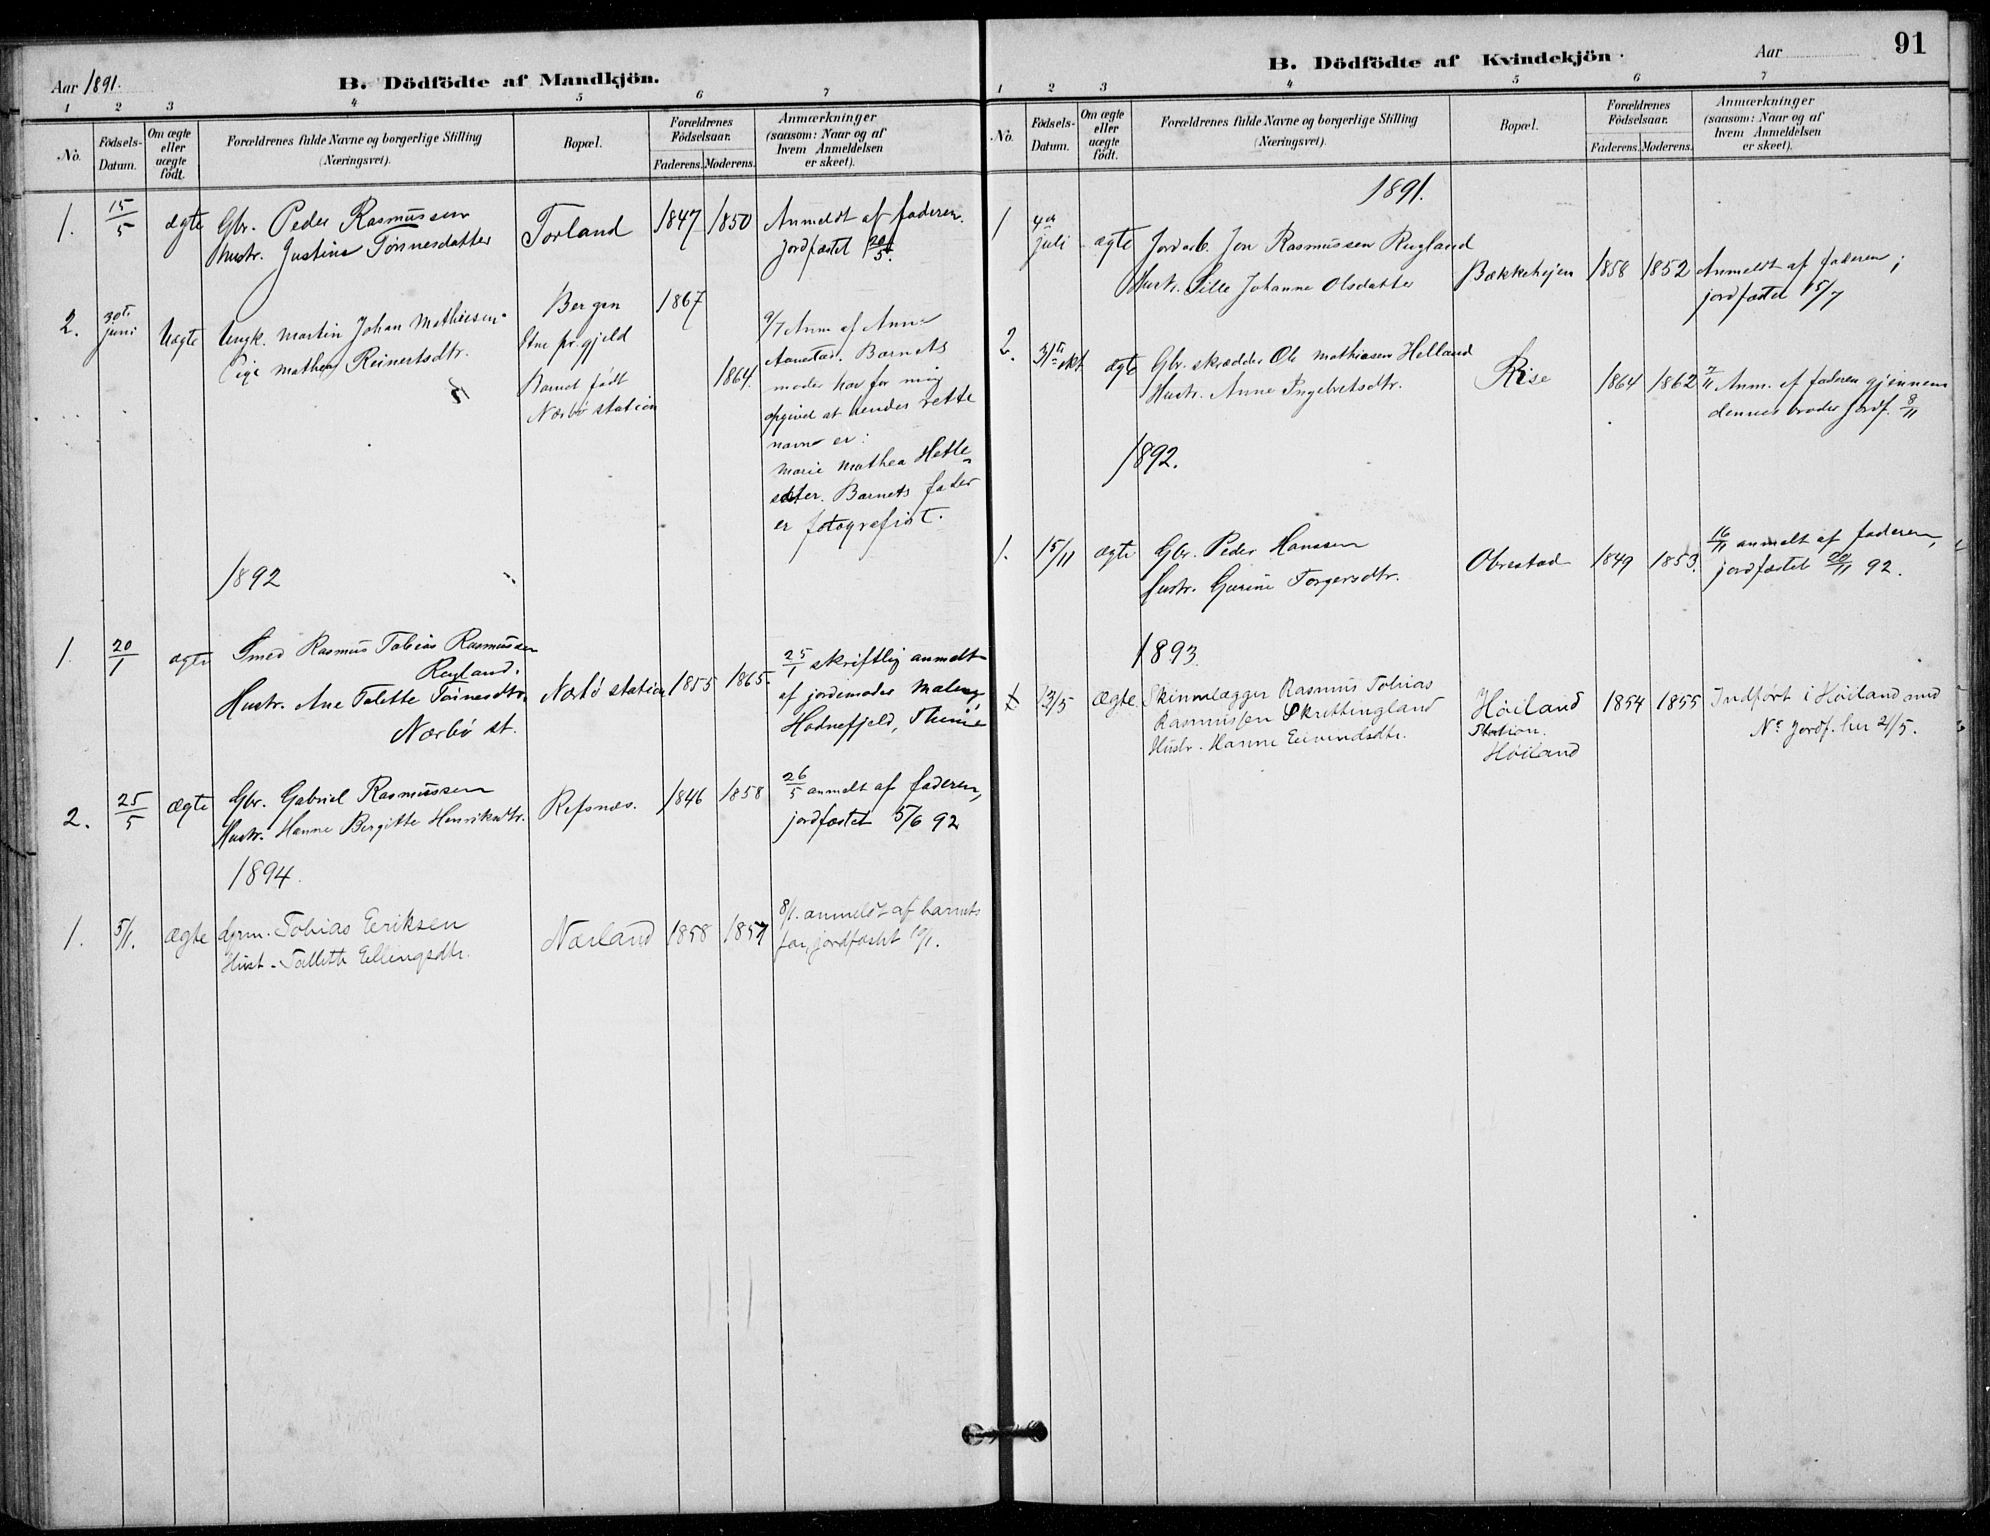 Aar 1891.
B. Dödfödte af Mandkjön.
1 2 3 4 5 6 7
No.
Födsels-Datum.
Om ægte eller uægte födt.
Forældrenes fulde Navne og borgerlige Stilling
(Næringsvei).
Bopæl.
Forældrenes Födselsaar.
Faderens. Moderens.
Anmærkninger
(saasom: Naar og af
hvem Anmeldelsen
er skeet).
1. 15/5 ægte Gbr. Peder Rasmussen
Hustr. Justine Tønnesdatter
Torland 1847 1850
Anmeldt af faderen.
jordfæstet 20/5.
2. 30te juni Uægte Ungk. Martin Johan Mathiesen.
Pige Mathea Reinertsdtr.
Bergen
Etne pr.gjeld
Barnet født
Nærbø station
1867 1864.
9/7 Anm af Anne
Aanestad. Barnets
moder har for mig
opgivet at hendes rette
navn er:
Marie Mathea Hette-
sæter. Barnets fader
er fotografist.
1892
1. 20/1 ægte Smed Rasmus Tobias Rasmussen
Rugland.
Hustr. Ane Talette Tønnesdtr.
Nærbø st.
Nærbø station 1855 1865.
25/1 skriftlig anmeldt
af jordemoder Maleng
Hodnefjeld, Thime
2. 25/5 Ægte Gbr. Gabriel Rasmussen
Hustr. Hanne Bergitte Henriksdtr.
Refsnæs. 1846 1858
26/5 anmeldt af faderen,
jordfæstet 5/6 92
1894.
1. 5/1. Ægte Grm. Tobias Eriksen
Hust. Tallette Ellingsdtr.
Nærland 1858 1857
8/1. anmeldt af barnets
far, jordfæstet 10/1.
91
B. Dödfödte af Kvindekjön.
Aar
1 2 3 4 5 6 7
No.
Födsels-Datum.
Om ægte eller uægte födt.
Forældrenes fulde Navne og borgerlige Stilling
(Næringsvei).
Bopæl.
Forældrenes Födselsaar.
Faderens. Moderens.
Anmærkninger
(saasom: Naar og af
hvem Anmeldelsen
er skeet).
1891.
1 4de juli ægte Jordarb. Jon Rasmussen Rugland
Hustr. Sille Johanne Olsdatter
Bækkehejen 1858 1852
Anmeldt af faderen;
jordfæstet 15/7
2. 31te okt ægte Gbr. skrædder Ole Mathiasen Helland
Hustr. Anne Ingebretsdtr.
Rise 1864 1862
2/11 Anm. af faderen gjennem
dennes broder Jordf. 8/11
1892.
1. 15/11 ægte Gbr. Peder Hanssen
Hustr. Gurine Torgersdtr.
Obrestad 1849 1853.
16/11 anmeldt af faderen,
jordfæstet 22/11 92.
1893.
13/5 Ægte Skinnelægger Rasmus Tobias
Rasmussen Skrettingland
Hustr. Hanne Eivindsdtr.
Høiland
Station.
Høiland
1854 1855
Indført i Høiland med
No Jordf. her 21/5.